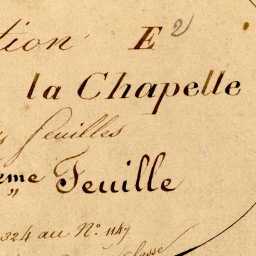 tion E 2
la Chapelle
feuilles
eme Feuille
324 au N° 1147